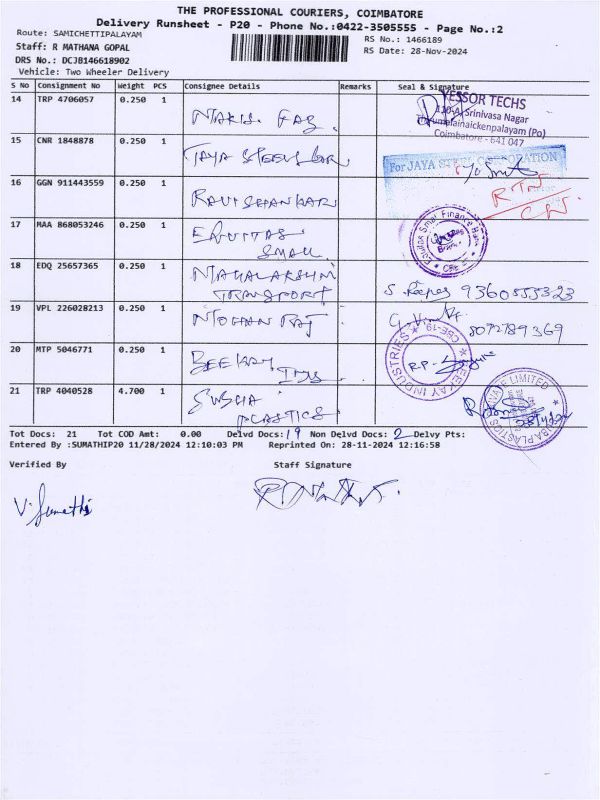 THE PROFESSIONAL COURIERS, COIMBATORE
Delivery Runsheet - P20 - Phone No.:0422-3505555 - Page No.:2
Route: SAMICHETTIPALAYAM
RS No.: 1466189
Staff: R MATHANA GOPAL
RS Date: 28-Nov-2024
DRS No.: DCJB146618902
Vehicle: Two Wheeler Delivery
S No Consignment No Weight PCS Consignee Details Remarks Seal & Signature
14 TRP 4706057 0.250 1
YESSOR TECHS
Srinivasa Nagar
Coimbatore - 641 047
15 CNR 1848878 0.250 1 JAYA STEEL
For JAYA STEEL CORPORATION
16 GGN 911443559 0.250 1 RAVISHANKAR
RTN
17 MAA 868053246 0.250 1 EQUITAS
SMALL
Equitas Small Finance Bank
18 EDQ 25657365 0.250 1 MAHALAKSHMI
TRANSPORT
9360555323
19 VPL 226028213 1 0.250 MOHAN RAJ
8072789369
20 MTP 5046771 0.250 1 BEEKAY
INDS
BEEKAY INDUSTRIES
CBE-19
21 TRP 4040528 4.700 1 SUBHA
PLASTICS
Tot Docs: 21 Tot COD Amt: 0.00 Delvd Docs: 19 Non Delvd Docs: 2 Delvy Pts:
Entered By :SUMATHIP20 11/28/2024 12:10:03 PM Reprinted On: 28-11-2024 12:16:58
Verified By Staff Signature
V. Sumathi